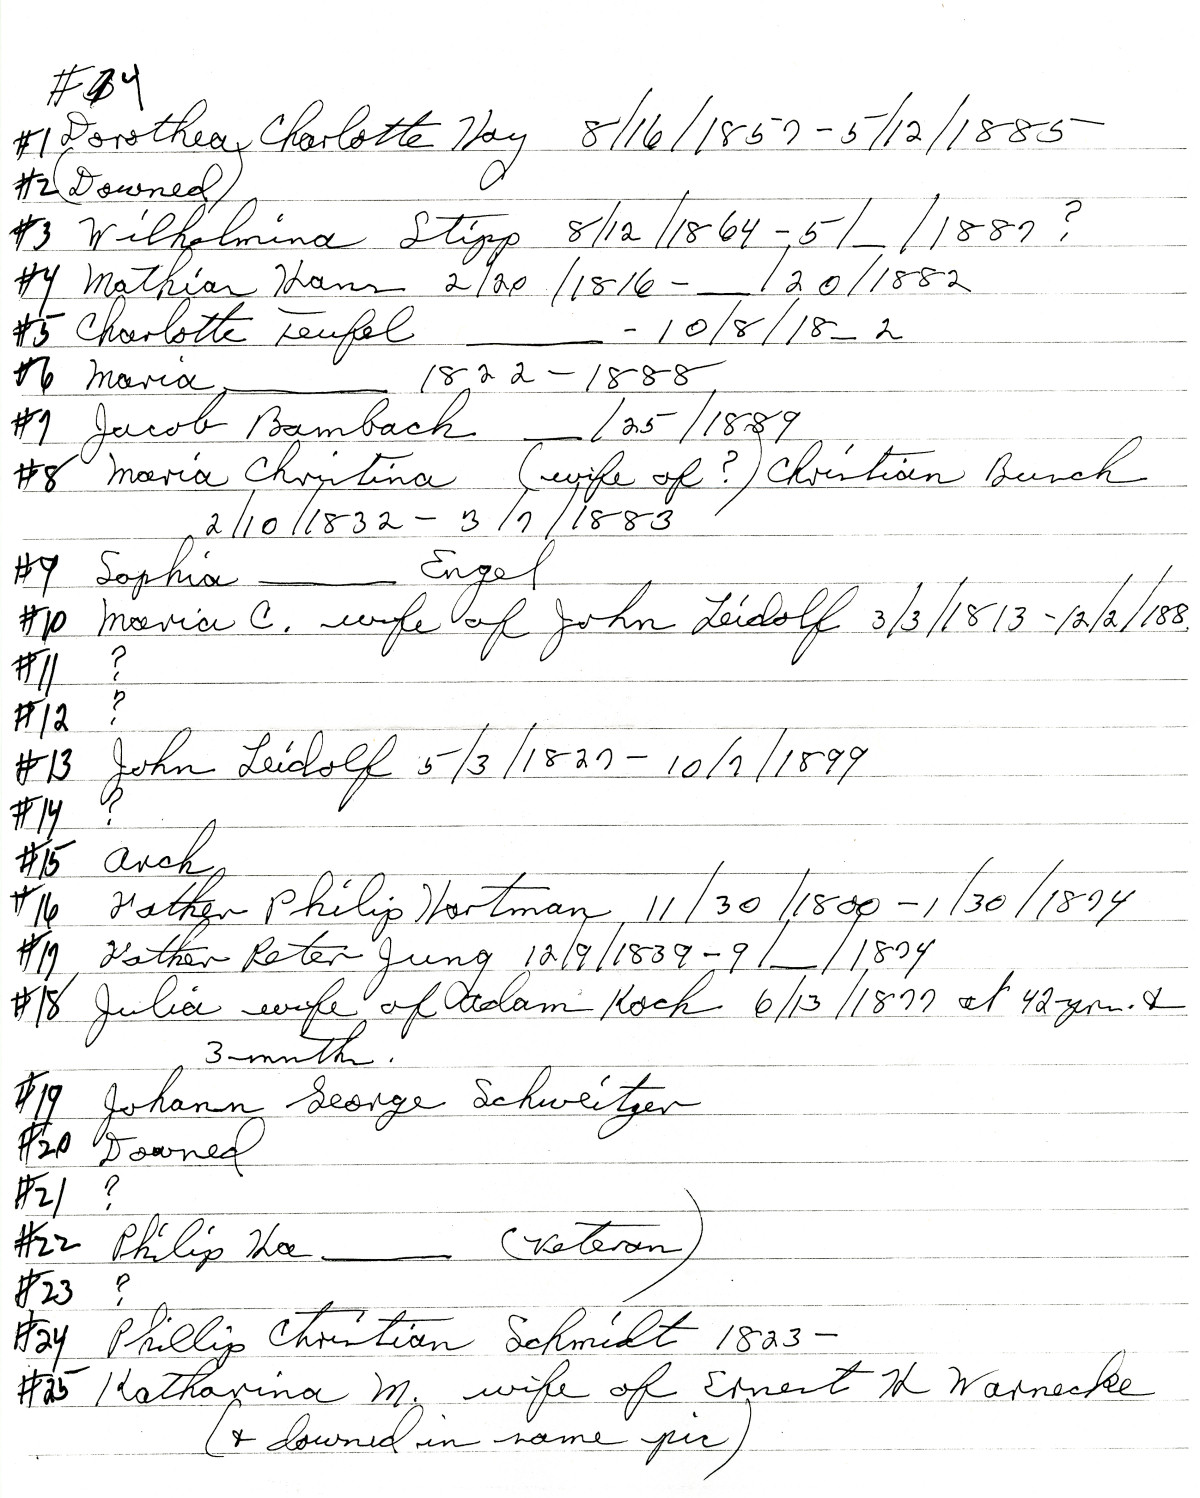 #34
#1 Dorothea Charlotte Hoy 8/16/1857 - 5/12/1885
#2 (Downed)
#3 Wilhelmina Stipp 8/12/1864 - 5/__/1887 ?
#4 Mathias Hans 2/20/1816 - ___/20/1882
#5 Charlotte Teufel ______ - 10/8/18_2
#6 Maria ______ 1822 - 1888
#7 Jacob Bambach ___/25/1889
#8 Maria Christina (wife of ?) Christian Bunch
2/10/1832 - 3/7/1883
#9 Sophia ______ Engel
#10 Maria C. wife of John Leidolf 3/3/1813 - 12/2/188
#11 ?
#12 ?
#13 John Leidolf 5/3/1827 - 10/7/1899
#14 ?
#15 Arch
#16 Father Philip Hartman 11/30/1800 - 1/30/1874
#17 Father Peter Jung 12/9/1839 - 9/___/1874
#18 Julia wife of Adam Koch 6/13/1877 at 42 yrs. &
3 month.
#19 Johann George Schweitzer
#20 Downed
#21 ?
#22 Philip Ha______ (Veteran)
#23 ?
#24 Phillip Christian Schmidt 1823 -
#25 Katharina M. wife of Ernest H Warnecke
(& downed in same pic)